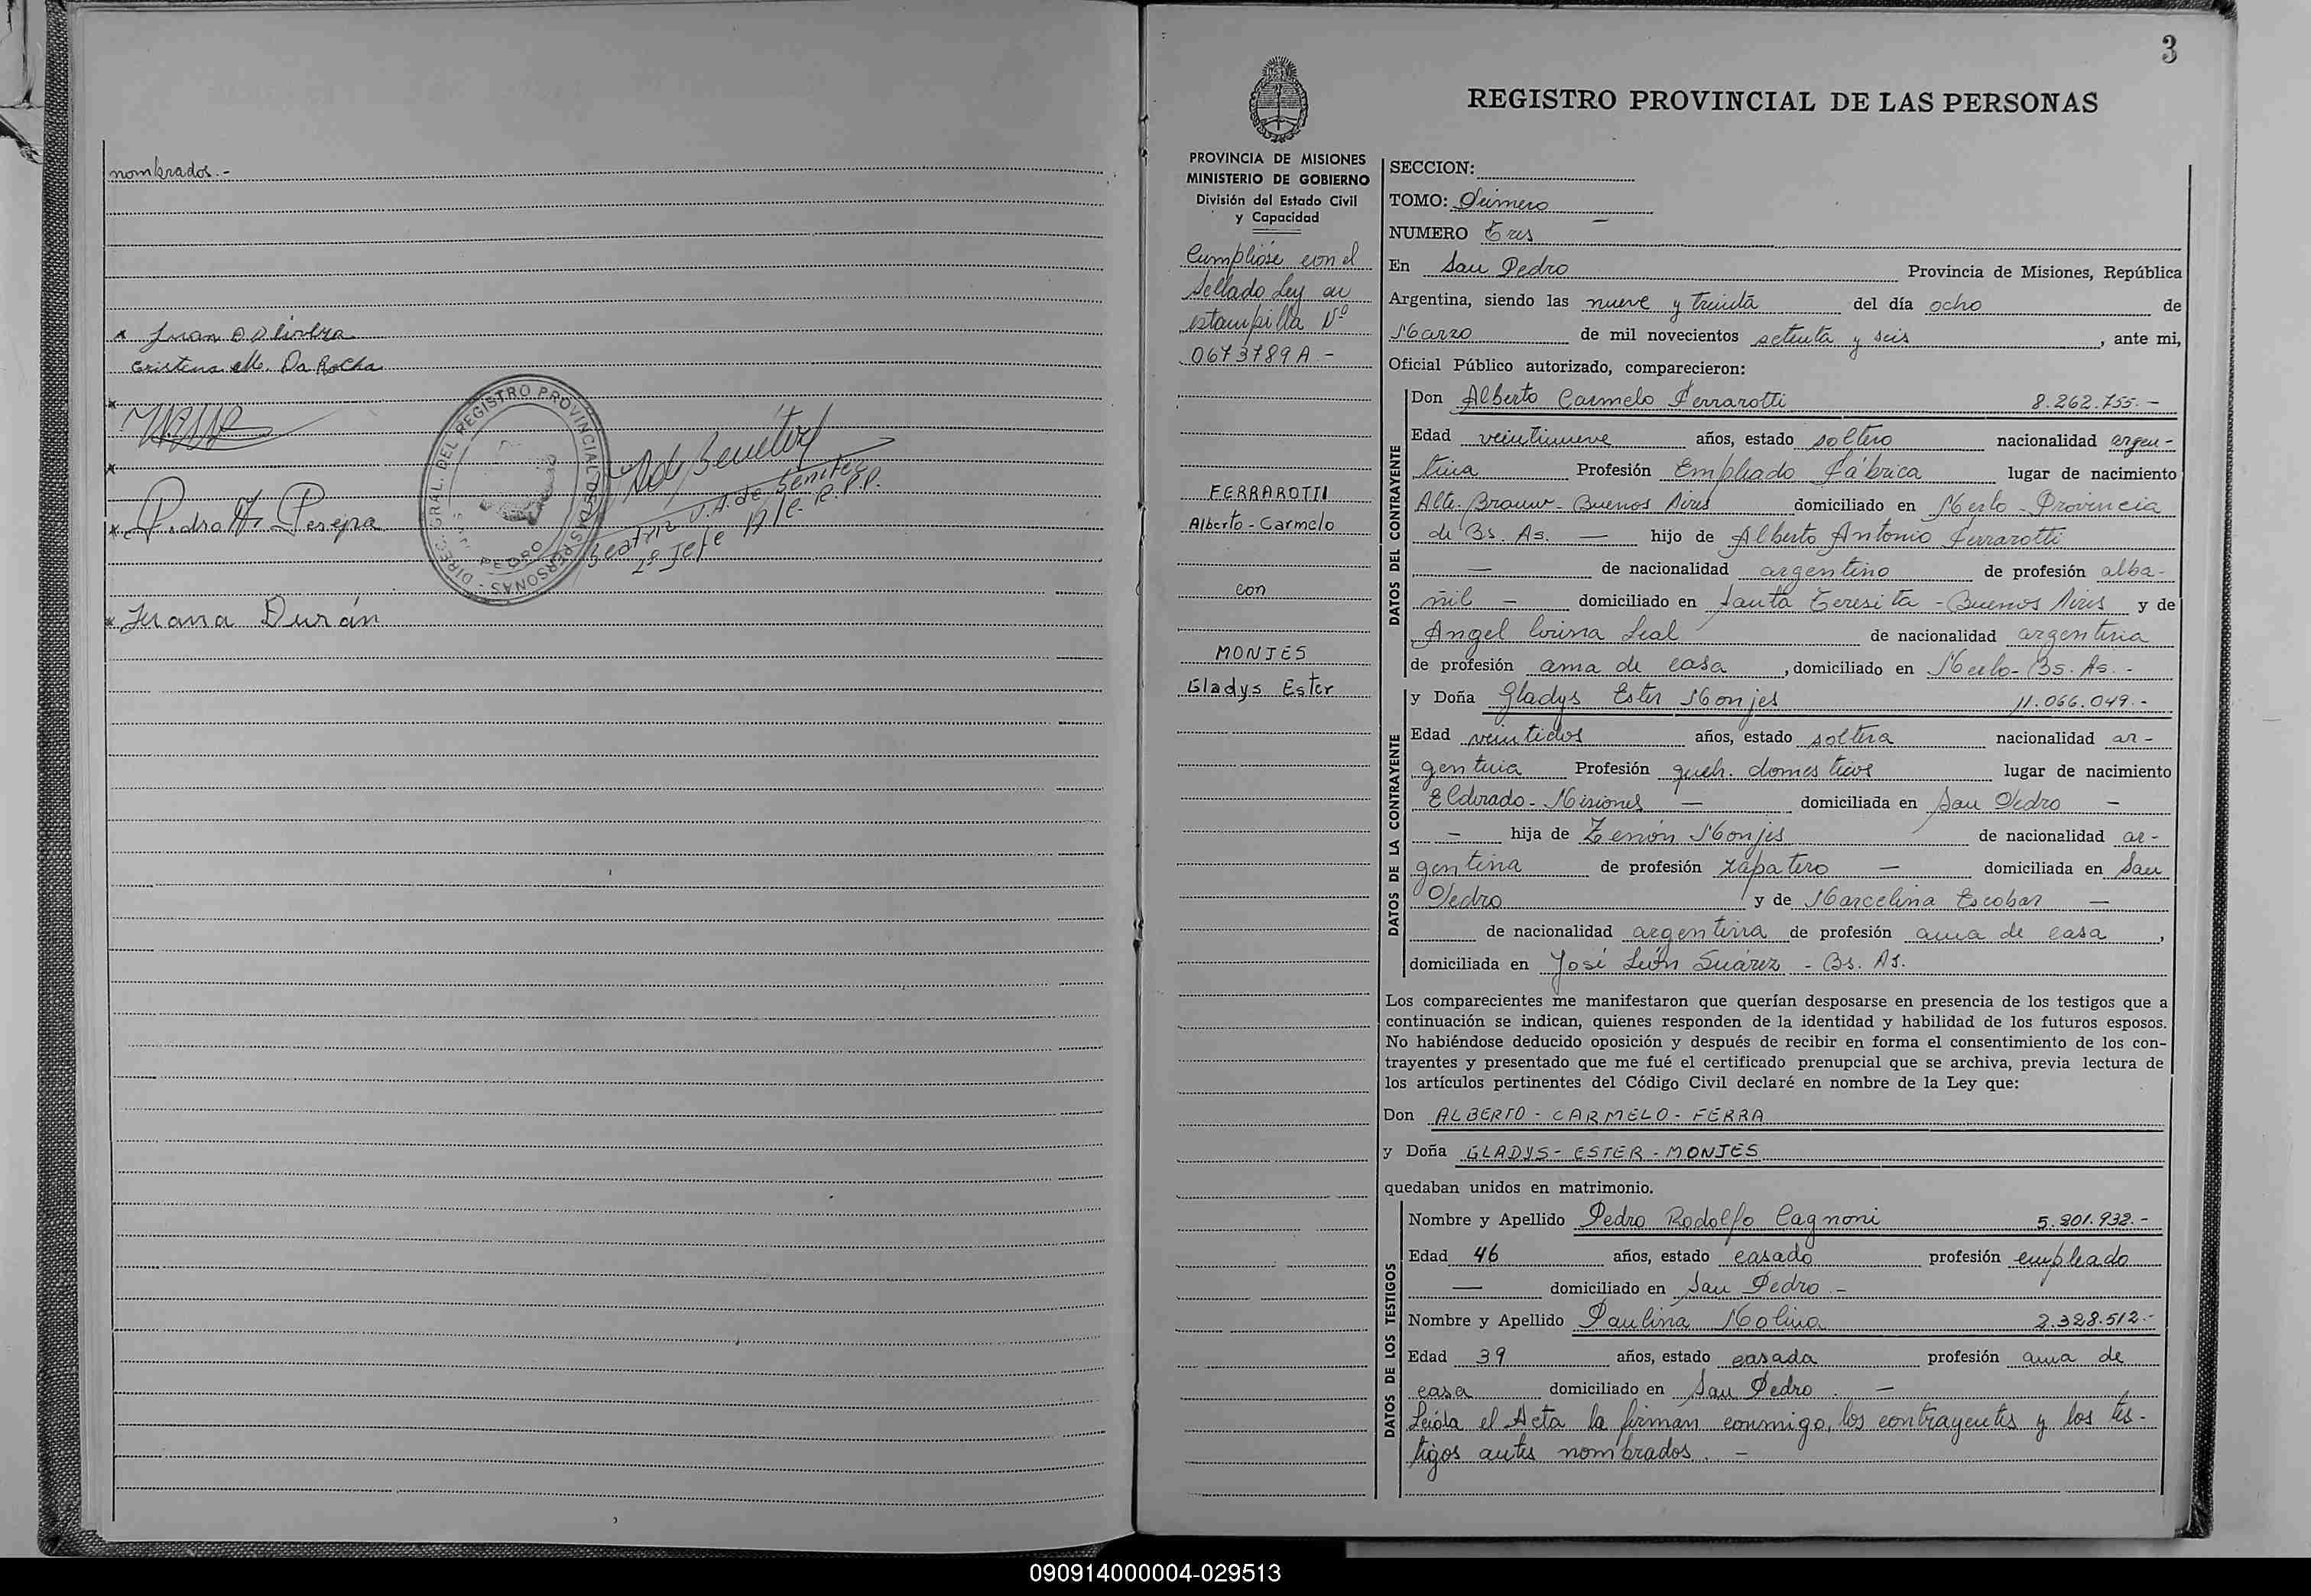 nombrados.-
Juan Olivera
Cristina M. Da Rocha
Pedro A. Pereyra
DIREC. GRAL. DEL REGISTRO PROVINCIAL DE LAS PERSONAS -
PEDRO
Beatriz J. A. de Benitez
2º Jefe R.P.P.
Juana Durán
3
REGISTRO PROVINCIAL DE LAS PERSONAS
PROVINCIA DE MISIONES
MINISTERIO DE GOBIERNO
División del Estado Civil
y Capacidad
Cumplióse con el
sellado Ley en
estampilla Nº
0673789A.-
FERRAROTTI
Alberto-Carmelo
con
MONJES
Gladys Ester
SECCION:
TOMO: Primero
NUMERO Tres
En San Pedro Provincia de Misiones, República
Argentina, siendo las nueve y treinta del día ocho de
Marzo de mil novecientos setenta y seis, ante mi,
Oficial Público autorizado, comparecieron:
DATOS DEL CONTRAYENTE
Don Alberto Carmelo Ferrarotti 8.262.755.-
Edad veintinueve años, estado soltero nacionalidad argen-
tina Profesión Empleado Fábrica lugar de nacimiento
Alte. Brown - Buenos Aires domiciliado en Merlo - Provincia
de Bs. As. — hijo de Alberto Antonio Ferrarotti
— de nacionalidad argentino de profesión alba-
ñil — domiciliado en Santa Teresita - Buenos Aires y de
Angel Corina Leal de nacionalidad argentina
de profesión ama de casa, domiciliado en Merlo - Bs. As. -
DATOS DE LA CONTRAYENTE
y Doña Gladys Ester Monjes 11.066.049.-
Edad veintidos años, estado soltera nacionalidad ar-
gentina Profesión queh. domesticos lugar de nacimiento
Eldorado - Misiones — domiciliada en San Pedro —
— hija de Zenón Monjes de nacionalidad ar-
gentina de profesión zapatero — domiciliada en San
Pedro y de Marcelina Escobar —
de nacionalidad argentina de profesión ama de casa,
domiciliada en José León Suárez - Bs. As.
Los comparecientes me manifestaron que querían desposarse en presencia de los testigos que a
continuación se indican, quienes responden de la identidad y habilidad de los futuros esposos.
No habiéndose deducido oposición y después de recibir en forma el consentimiento de los con-
trayentes y presentado que me fué el certificado prenupcial que se archiva, previa lectura de
los artículos pertinentes del Código Civil declaré en nombre de la Ley que:
Don ALBERTO - CARMELO - FERRA
y Doña GLADYS - ESTER - MONJES
quedaban unidos en matrimonio.
DATOS DE LOS TESTIGOS
Nombre y Apellido Pedro Rodolfo Cagnoni 5.201.932.-
Edad 46 años, estado casado profesión empleado
— domiciliado en San Pedro -
Nombre y Apellido Paulina Molina 2.328.512.-
Edad 39 años, estado casada profesión ama de
casa domiciliado en San Pedro. —
Leída el Acta la firman conmigo, los contrayentes y los tes-
tigos antes nombrados. —
090914000004-029513